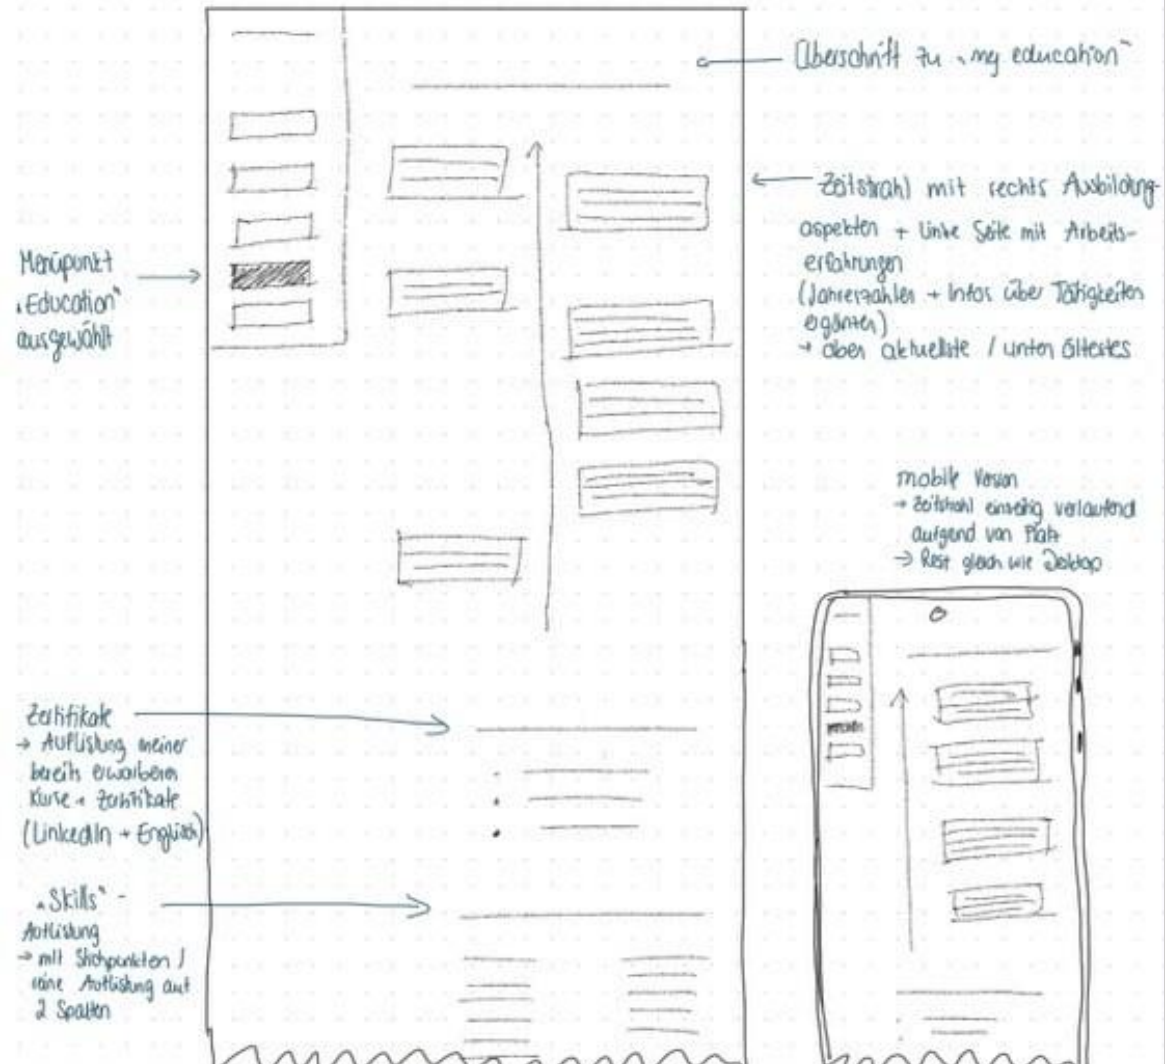 Überschrift zu „my education"
Zeitstrahl mit rechts Ausbildung-
aspekten + linke Seite mit Arbeits-
erfahrungen
(Jahreszahlen + Infos über Tätigkeiten
ergänzen)
→ oben aktuellste / unten ältestes
Menüpunkt
„Education"
ausgewählt
mobile Version
→ Zeitstrahl einseitig verlaufend
aufgrund von Platz
→ Rest gleich wie Desktop
Zertifikate
→ Auflistung meiner
bereits erworbenen
Kurse + Zertifikate
(LinkedIn + Englisch)
„Skills" -
Auflistung
→ mit Stichpunkten /
reine Auflistung auf
2 Spalten